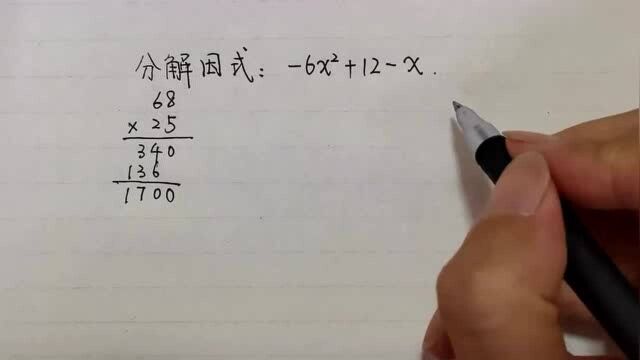 分解因式：-6x²+12-x.
68
×25
340
136
1700